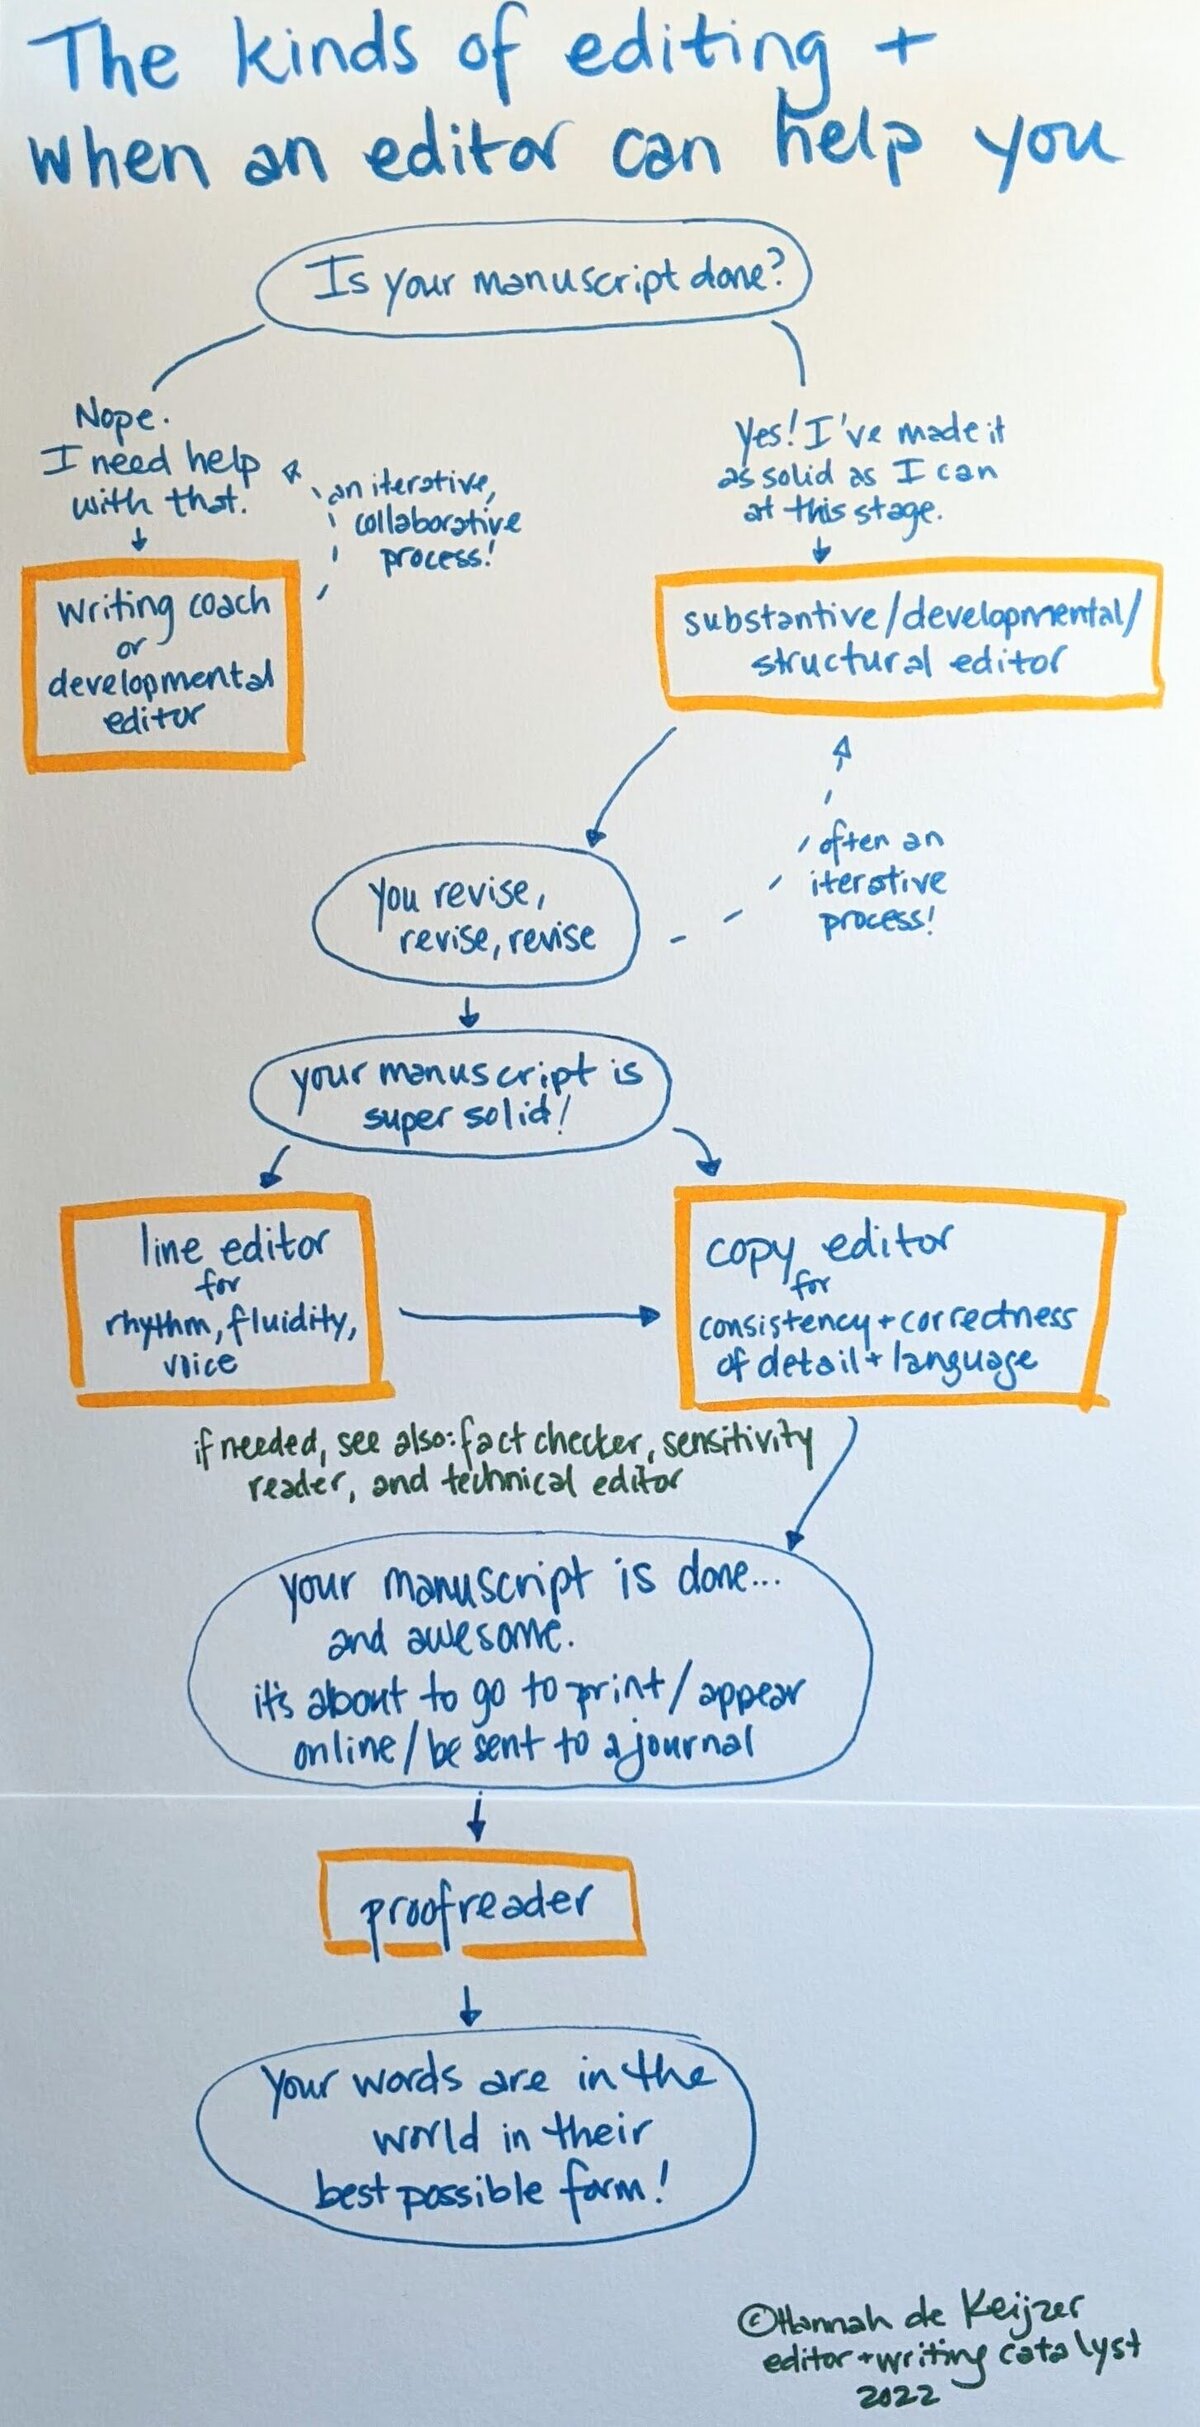 The kinds of editing +
when an editor can help you
Is your manuscript done?
Nope.
I need help
with that.
an iterative,
collaborative
process!
writing coach
or
developmental
editor
Yes! I've made it
as solid as I can
at this stage.
substantive/developmental/
structural editor
often an
iterative
process!
you revise,
revise, revise
your manuscript is
super solid!
line editor
for
rhythm, fluidity,
voice
copy editor
for
consistency + correctness
of detail + language
if needed, see also: fact checker, sensitivity
reader, and technical editor
your manuscript is done...
and awesome.
it's about to go to print/appear
online/be sent to a journal
proofreader
Your words are in the
world in their
best possible form!
©Hannah de Keijzer
editor + writing catalyst
2022